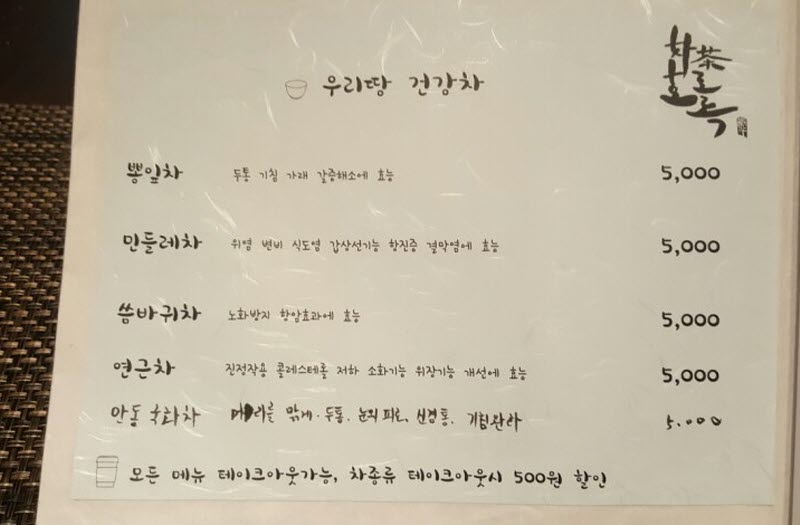 우리땅 건강차
차茶호로록
뽕잎차 두통 기침 가래 갈증해소에 효능 5,000
민들레차 위염 변비 식도염 갑상선기능 항진증 결막염에 효능 5,000
씀바귀차 노화방지 항암효과에 효능 5,000
연근차 진정작용 콜레스테롤 저하 소화기능 위장기능 개선에 효능 5,000
안동국화차 머리를 맑게. 두통. 눈의피로, 신경통. 기침완화 5.000
모든 메뉴 테이크아웃가능, 차종류 테이크아웃시 500원 할인